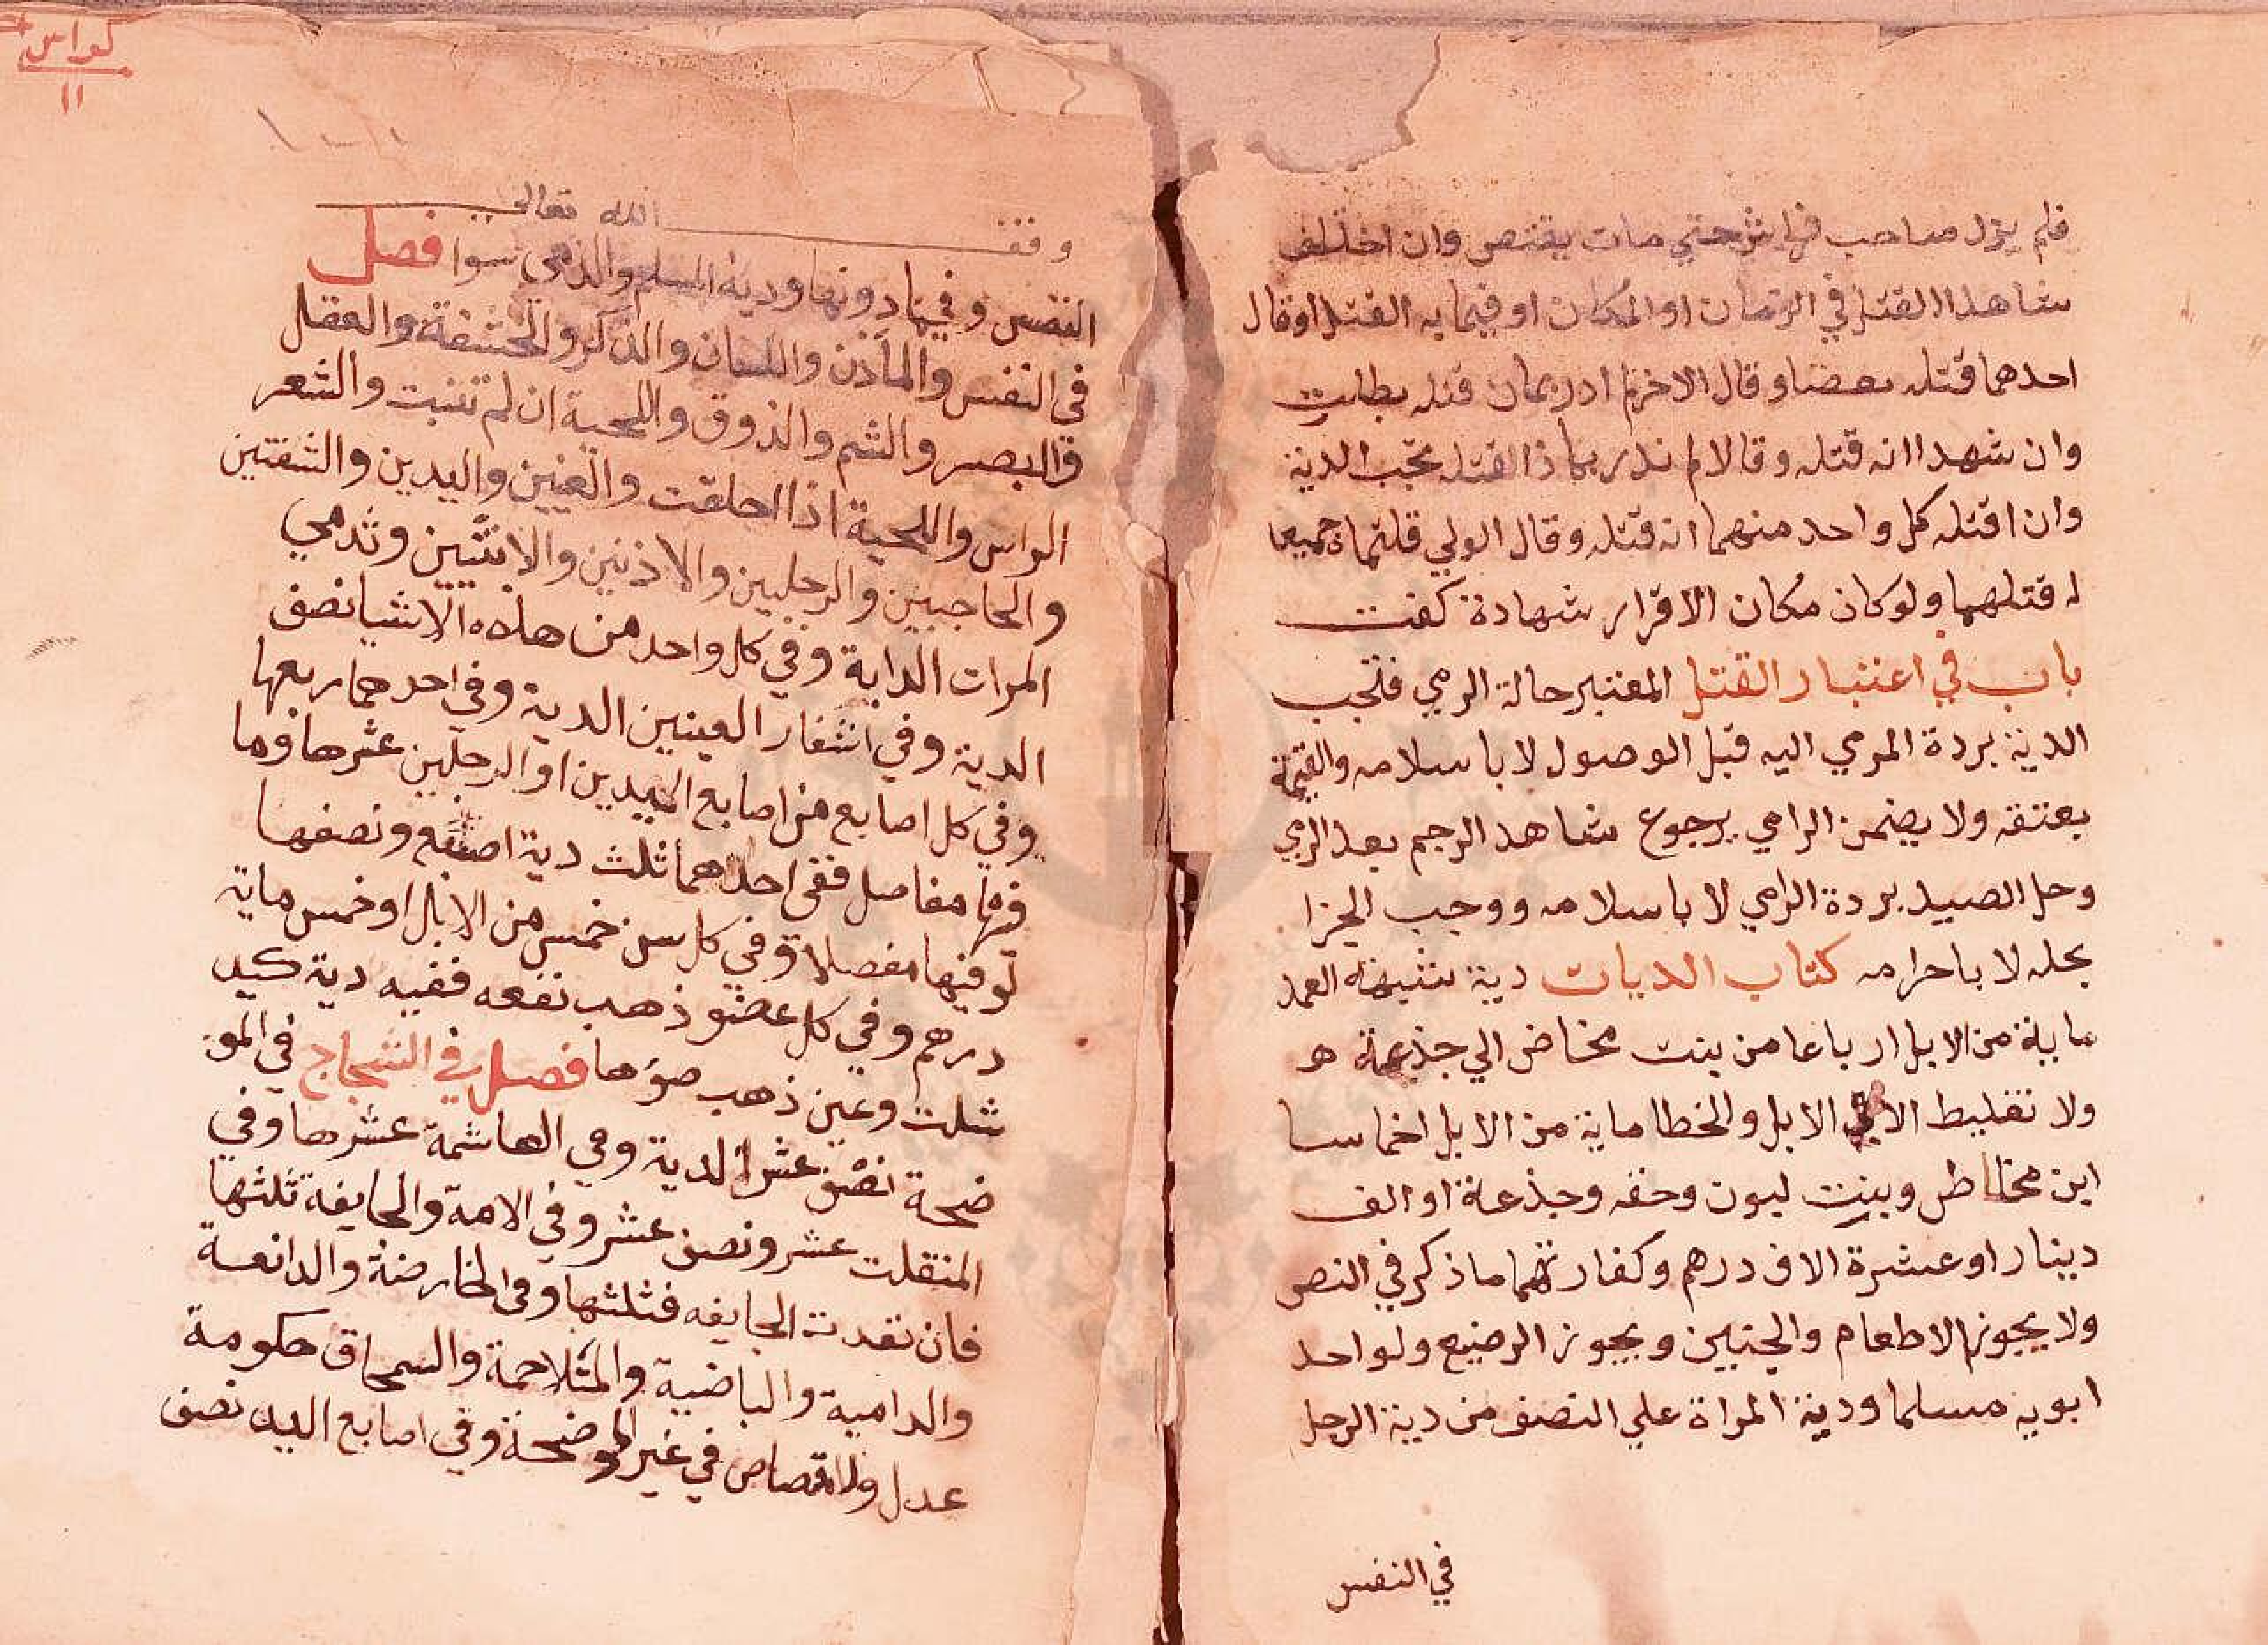 فلم يزل صاحب فراش حتي مات يقتص وان اختلف
شاهدا القتل في الزمان او المكان او فيما به القتل او قال
احدهما قتله بعصا وقال الاخر لم ادر بماذا قتله بطلت
وان شهدا انه قتله وقالا لم ندر بماذا القتله تجب الدية
وان اقتله كل واحد منهما انه قتله وقال الولي قلتما جميعا
له قتلهما ولو كان مكان الاقرار شهادة كفت
باب في اعتبار القتل المعتبر حالة الرمي فتجب
الدية بردة المرمي اليه قبل الوصول لا باسلامه والقيمة
بعتقه ولا يضمن الرامي برجوع شاهد الرجم بعد الرمي
وحل الصيد بردة الرامي لا باسلامه ووجب الجزا
بحله لا باحرامه كتاب الديات دية شبهه العمد
ماية من الابل ارباعا من بنت مخاض الي جذعة هو
ولا تغليط الا في الابل والخطا ماية من الابل اخماسا
ابن مخاطل وبنت لبون وحقه وجذعة او الف
دينار او عشرة الاف درهم وكفارتهما ما ذكر في النص
ولا يجوز الاطعام والجنين ويجوز الرضيع ولو احد
ابويه مسلما ودية المراة علي النصف من دية الرجل
في النفس
كراس
١١
وقف الله تعالى
النفس وفيما دونها ودية المسلم والذمي سوا فصل
في النفس والمآذن واللسان والذكر والحشفة والعقل
والبصر والشم والذوق واللحية ان لم تنبت والشعر
الراس واللحية اذا احلقت والعينين واليدين والشفتين
والحاجبين والرجلين والاذنين والانثيين وثدمي
المرات الدابة وفي كل واحد من هذه الاشيا نصف
الدية وفي اشفار العينين الدية وفي احدهما ربعها
وفي كل اصابع من اصابع اليدين او الرجلين عشرها وما
فيها مفاصل ففي احدهما ثلث دية اصبع ونصفها
لو فيها مفصلا وفي كل سن خمس من الابل او خمس ماية
درهم وفي كل عضو ذهب نفعه ففيه دية كيد
شلت وعين ذهب ضوءها فصل في الشجاج في المو
ضحة نصف عشر الدية وفي الهاشمة عشرها وفي
المنقلت عشر ونصف عشر وفي الامة والجايفة ثلثها
فان نفدت الجايفه فثلثها وفي الخارضة والدانعة
والدامية والباضية والمتلاحمة والسمحاق حكومة
عدل ولا قصاص في غير الموضحة وفي اصابع اليد نصف